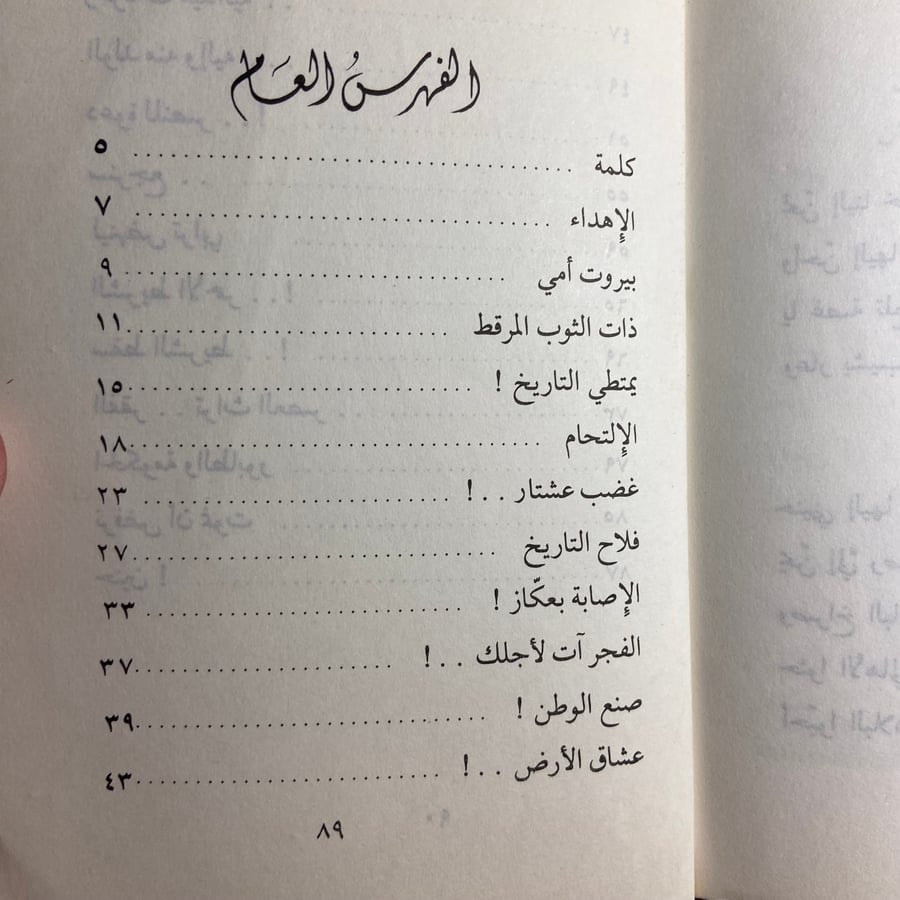 الفهرسُ العَام
كلمة ........................ ٥
الإهداء ........................ ٧
بيروت أمي ........................ ٩
ذات الثوب المرقط ........................ ١١
يمتطي التاريخ ! ........................ ١٥
الإلتحام ........................ ١٨
غضب عشتار . . ! ........................ ٢٣
فلاح التاريخ ........................ ٢٧
الإصابة بعكّاز ! ........................ ٣٣
الفجر آت لأجلك . . ! ........................ ٣٧
صنع الوطن ! ........................ ٣٩
عشاق الأرض . . ! ........................ ٤٣
٨٩